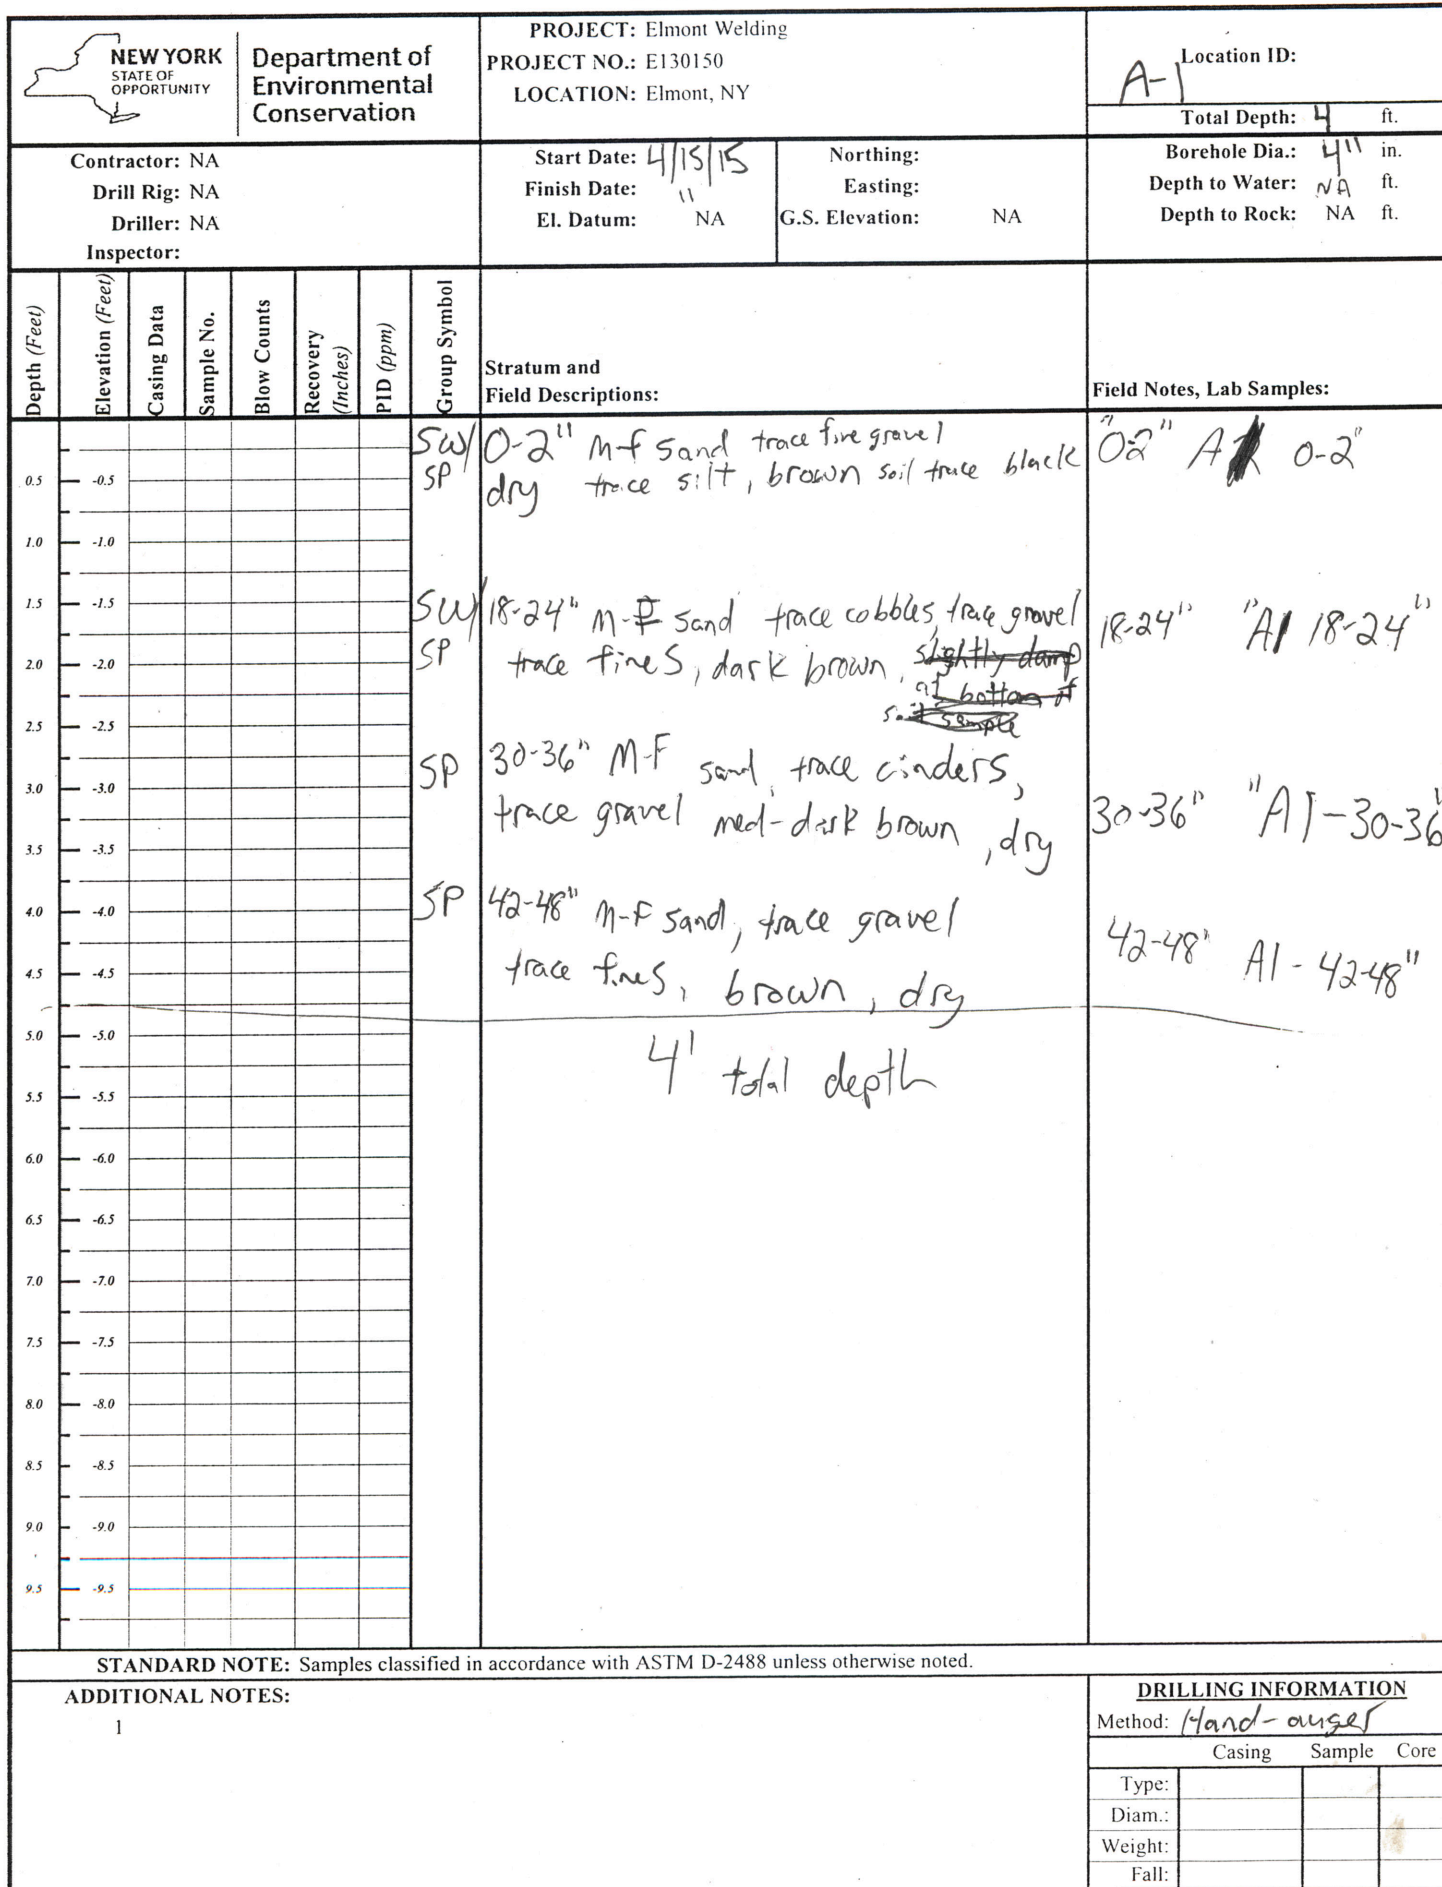 NEW YORK
STATE OF
OPPORTUNITY
Department of
Environmental
Conservation
PROJECT: Elmont Welding
PROJECT NO.: E130150
LOCATION: Elmont, NY
Location ID:
A-1
Total Depth: 4 ft.
Contractor: NA
Drill Rig: NA
Driller: NA
Inspector:
Start Date: 4/15/15
Finish Date: "
El. Datum: NA
Northing:
Easting:
G.S. Elevation: NA
Borehole Dia.: 4" in.
Depth to Water: NA ft.
Depth to Rock: NA ft.
Depth (Feet)
Elevation (Feet)
Casing Data
Sample No.
Blow Counts
Recovery
(Inches)
PID (ppm)
Group Symbol
Stratum and
Field Descriptions:
Field Notes, Lab Samples:
SW/ 0-2" M-f sand trace fine gravel
SP dry trace silt, brown soil trace black
"0-2" A 0-2"
0.5 -0.5
1.0 -1.0
1.5 -1.5
SW/ 18-24" M-F sand trace cobbles, trace gravel
SP trace fines, dark brown, slightly damp
at bottom of
soil sample
18-24" "A1 18-24"
2.0 -2.0
2.5 -2.5
SP 30-36" M-F sand, trace cinders,
trace gravel med-dark brown, dry
30-36" "A1-30-36"
3.0 -3.0
3.5 -3.5
SP 42-48" M-F sand, trace gravel
trace fines, brown, dry
42-48" A1-42-48"
4.0 -4.0
4.5 -4.5
4' total depth
5.0 -5.0
5.5 -5.5
6.0 -6.0
6.5 -6.5
7.0 -7.0
7.5 -7.5
8.0 -8.0
8.5 -8.5
9.0 -9.0
9.5 -9.5
STANDARD NOTE: Samples classified in accordance with ASTM D-2488 unless otherwise noted.
ADDITIONAL NOTES:
1
DRILLING INFORMATION
Method: Hand-auger
Casing Sample Core
Type:
Diam.:
Weight:
Fall: